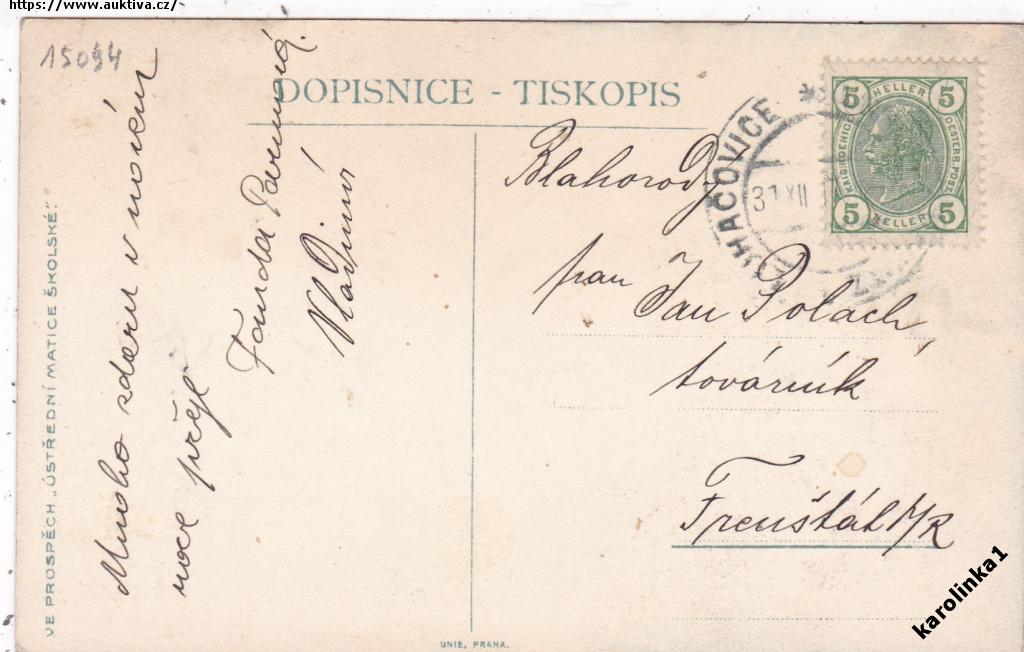 https://www.auktiva.cz/
15094
DOPISNICE - TISKOPIS
VE PROSPĚCH „ÚSTŘEDNÍ MATICE ŠKOLSKÉ".
Mnoho zdaru v novém
roce přeje
Fanda
Vladimír
UNIE, PRAHA.
LUHAČOVICE
31 XII
5 HELLER 5
KAIS. KOENIGL. OESTERR. POST
5 HELLER 5
Blahorodý
pan Jan Polach,
továrník
Frenštát p/R
karolinka1